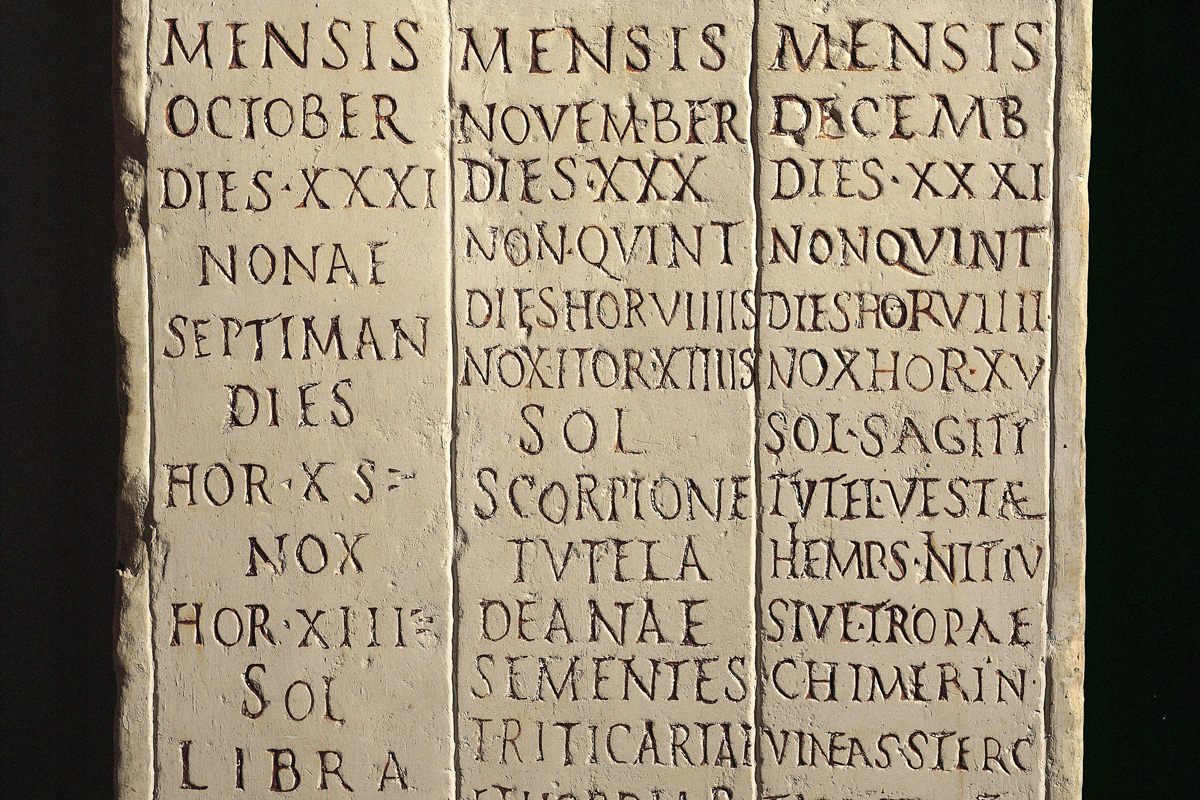 MENSIS
OCTOBER
DIES·XXXI
NONAE
SEPTIMAN
DIES
HOR·X S=
NOX
HOR·XIII=
SOL
LIBRA
MENSIS
NOVEMBER
DIES·XXX
NON·QVINT
DIESHORVIIIIS
NOX·ITOR·XIIIIS
SOL
SCORPIONE
TVTELA
DEANAE
SEMENTES
TRITICARIAE
MENSIS
DECEMB
DIES·XXXI
NONQVINT
DIESHORVIIII·
NOXHOR·XV
SOL·SAGITT
TVTEL·VESTÆ
HEMPS·NITIV
SIVE·TROPAE
CHIMERIN·
VINEAS·STERC